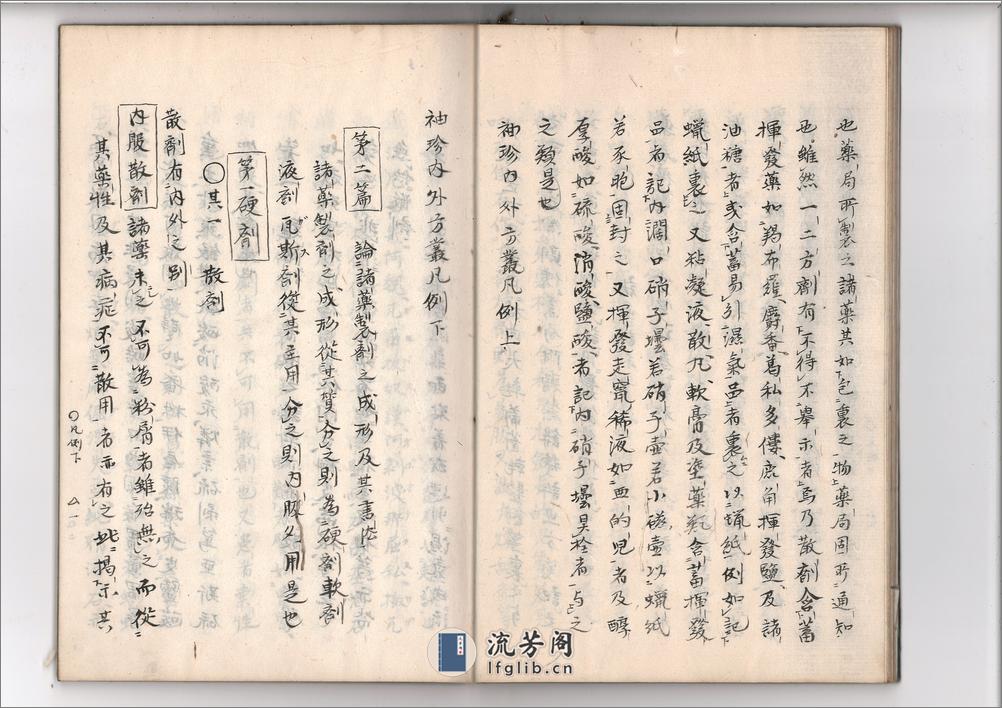 也藥局所製之諸藥其如包裹之物藥局固所通知
也雖然一二方劑有不得不舉示者焉乃散劑含蓄
揮發藥如羯布羅麝香葛私多僂鹿角揮發鹽及諸
油糖者或含蓄易引濕氣品者裹之以蠟紙例如記
蠟紙裹之又粘凝液散丸軟膏及塗藥剤含蓄揮發
品者記内濶口硝子壜若硝子壺若小磁壺以蠟紙
若豕胞固封之又揮發走竄稀液如亞的兒者及醇
厚酸如硫酸消酸鹽酸者記内硝子壜具栓者与之
之類是也
袖珍内外方叢凡例上
袖珍内外方叢凡例下
第二篇 論諸藥製劑之成形及其書法
諸藥製劑之成形從其質分之則為硬劑軟劑
液劑瓦斯劑從其主用分之則内服外用是也
ガス
第一硬劑
〇其一散劑
散劑有内外之別
内服散劑 諸藥末之不可為粉屑者雖殆無之而從
其藥性及其病症不可散用者亦有之此揭示其
〇凡例下
一
流芳阁
lfglib.cn